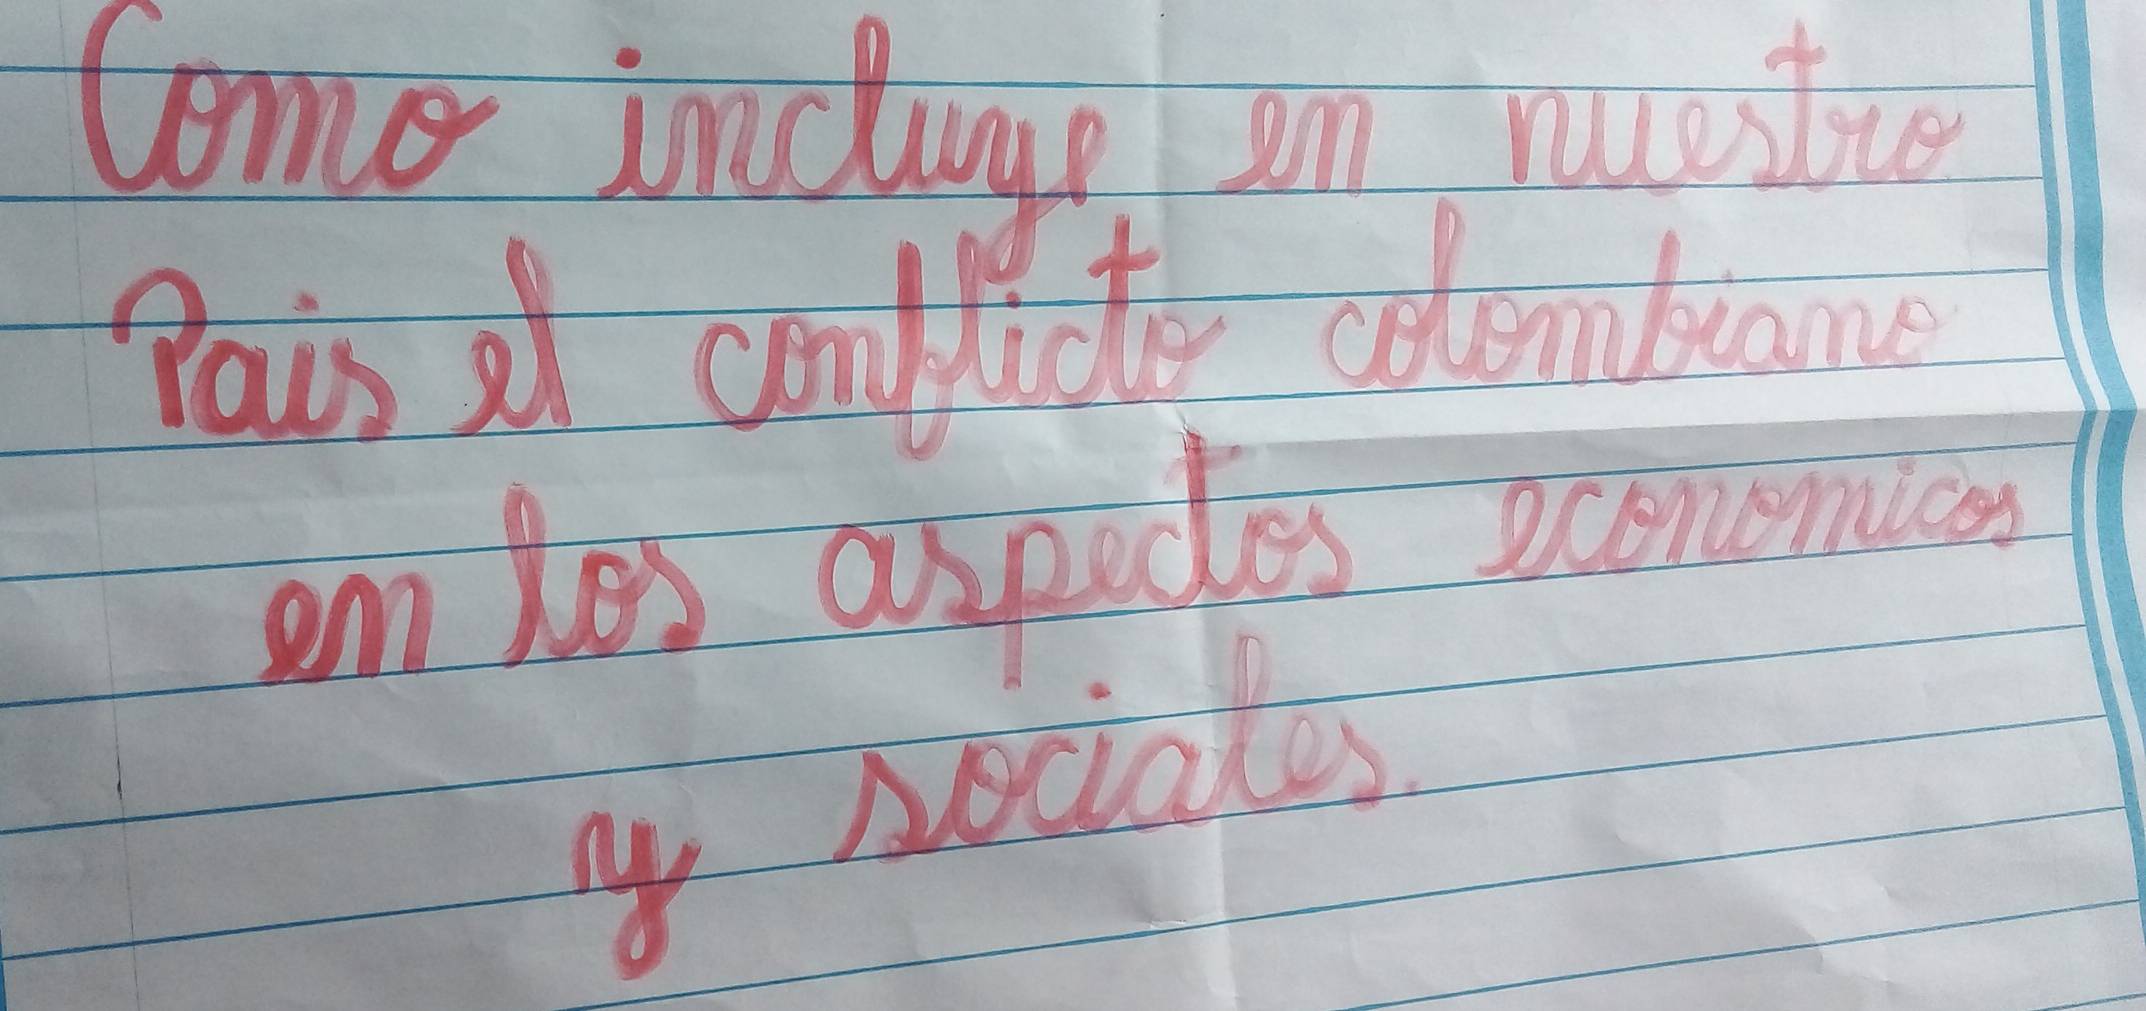 Como incluye en nuestro
Pais el conflicto colombiano
en los aspectos economicos
y sociales.